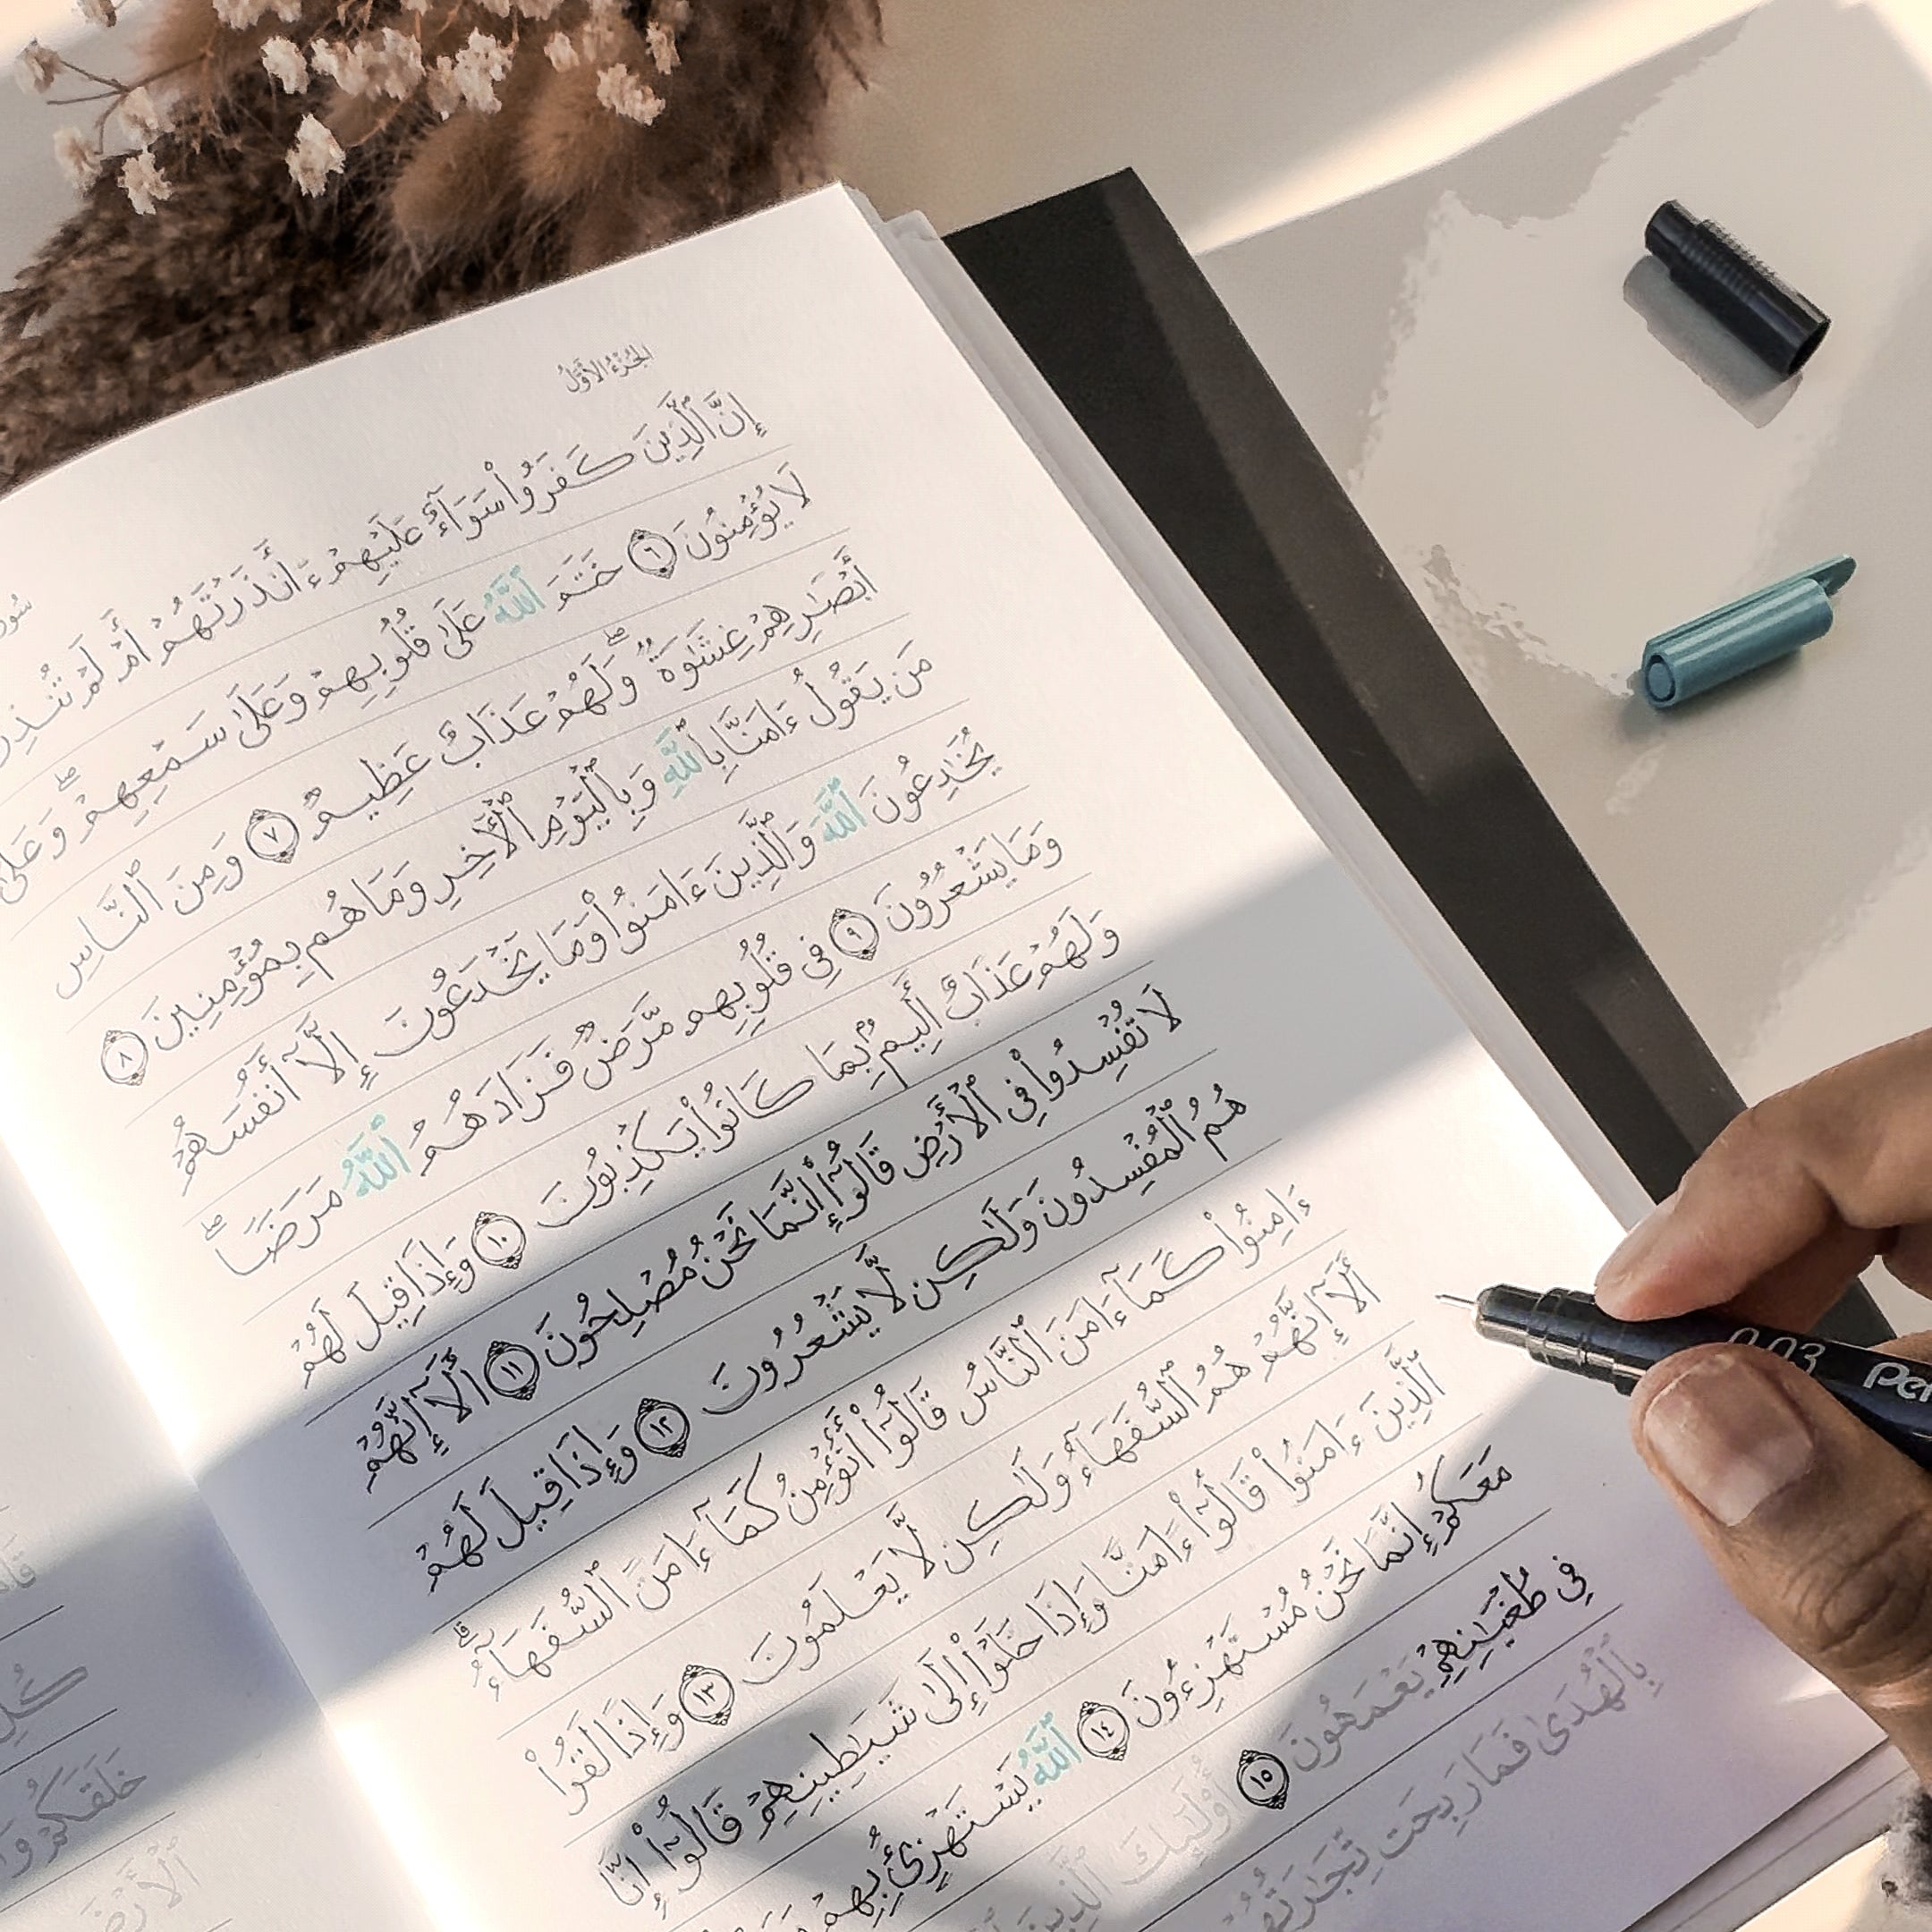 الجُزْءُ الأَوَّلُ
إِنَّ ٱلَّذِينَ كَفَرُوا۟ سَوَآءٌ عَلَيْهِمْ ءَأَنذَرْتَهُمْ أَمْ لَمْ
لَا يُؤْمِنُونَ ٦ خَتَمَ ٱللَّهُ عَلَىٰ قُلُوبِهِمْ وَعَلَىٰ سَمْعِهِمْ ۖ وَعَلَىٰٓ
أَبْصَـٰرِهِمْ غِشَـٰوَةٌ ۖ وَلَهُمْ عَذَابٌ عَظِيمٌ ٧ وَمِنَ ٱلنَّاسِ
مَن يَقُولُ ءَامَنَّا بِٱللَّهِ وَبِٱلْيَوْمِ ٱلْـَٔاخِرِ وَمَا هُم بِمُؤْمِنِينَ ٨
يُخَـٰدِعُونَ ٱللَّهَ وَٱلَّذِينَ ءَامَنُوا۟ وَمَا يَخْدَعُونَ إِلَّآ أَنفُسَهُمْ
وَمَا يَشْعُرُونَ ٩ فِى قُلُوبِهِم مَّرَضٌ فَزَادَهُمُ ٱللَّهُ مَرَضًا ۖ
وَلَهُمْ عَذَابٌ أَلِيمٌۢ بِمَا كَانُوا۟ يَكْذِبُونَ ١٠ وَإِذَا قِيلَ لَهُمْ
لَا تُفْسِدُوا۟ فِى ٱلْأَرْضِ قَالُوٓا۟ إِنَّمَا نَحْنُ مُصْلِحُونَ ١١ أَلَآ إِنَّهُمْ
هُمُ ٱلْمُفْسِدُونَ وَلَـٰكِن لَّا يَشْعُرُونَ ١٢ وَإِذَا قِيلَ لَهُمْ
ءَامِنُوا۟ كَمَآ ءَامَنَ ٱلنَّاسُ قَالُوٓا۟ أَنُؤْمِنُ كَمَآ ءَامَنَ ٱلسُّفَهَآءُ ۗ
أَلَآ إِنَّهُمْ هُمُ ٱلسُّفَهَآءُ وَلَـٰكِن لَّا يَعْلَمُونَ ١٣ وَإِذَا لَقُوا۟
ٱلَّذِينَ ءَامَنُوا۟ قَالُوٓا۟ ءَامَنَّا وَإِذَا خَلَوْا۟ إِلَىٰ شَيَـٰطِينِهِمْ قَالُوٓا۟ إِنَّا
مَعَكُمْ إِنَّمَا نَحْنُ مُسْتَهْزِءُونَ ١٤ ٱللَّهُ يَسْتَهْزِئُ بِهِمْ
فِى طُغْيَـٰنِهِمْ يَعْمَهُونَ ١٥ أُو۟لَـٰٓئِكَ ٱلَّذِينَ
بِٱلْهُدَىٰ فَمَا رَبِحَت تِّجَـٰرَتُهُمْ
كُلَّ
خَلَقَكُمْ
ٱلْأَرْضَ
0.03 Pen